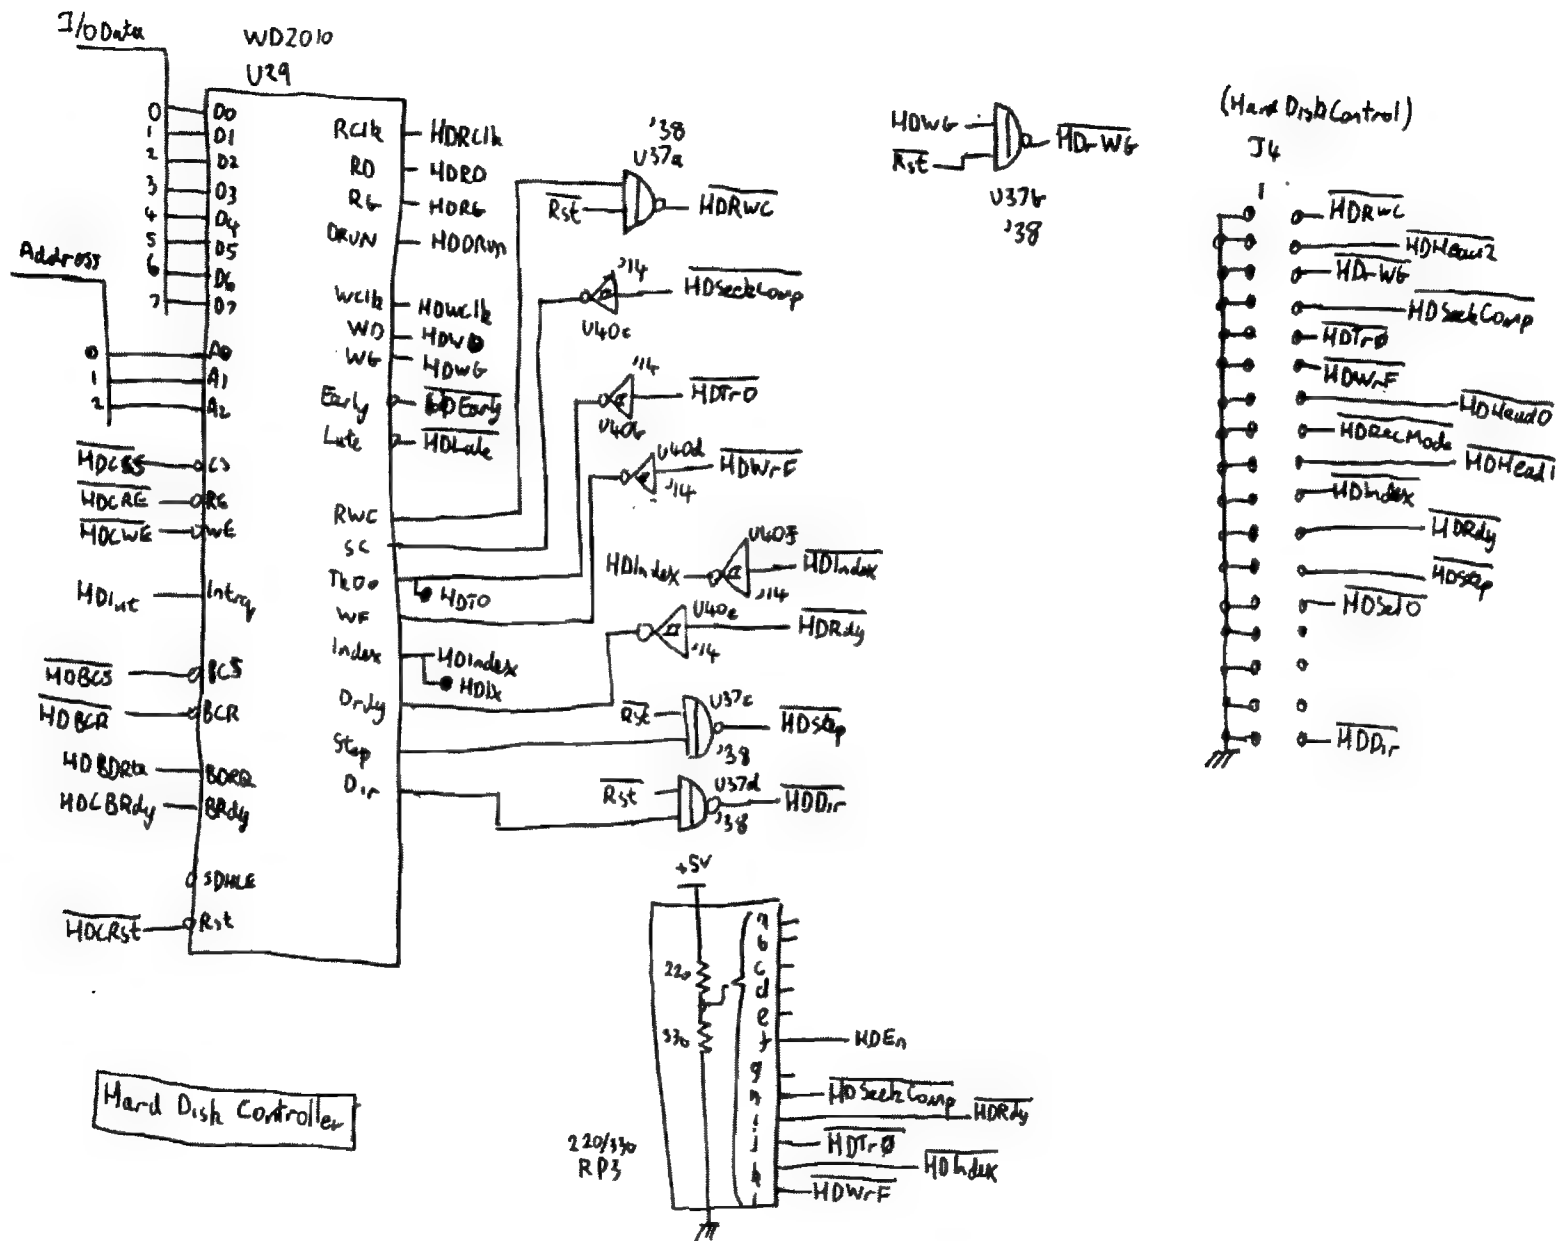 I/O Data
WD2010
U29
0 D0
1 D1
2 D2
3 D3
4 D4
5 D5
6 D6
7 D7
Address
0 A0
1 A1
2 A2
HDCS CS
HDCRE RE
HDCWE WE
HDInt Intrq
HDBCS BCS
HDBCR BCR
BDRQ
HDCBRdy BRdy
SDHLE
HDCRst Rst
RClk HDRClk
RD HDRD
RG HDRG
DRUN HDDRun
WClk HDWClk
WD HDWD
WG HDWG
Early HDEarly
Late HDLate
RWC
SC
Tk00
HDT0
WF
Index HDIndex
HDIx
Drdy
Step
Dir
'38
U37a
Rst HDRWC
'14 HDSeekComp
U40c
'14 HDTr0
U40b
U40d HDWrF
'14
U40f
HDIndex HDIndex
'14
U40e HDRdy
'14
U37c
Rst HDStep
'38
U37d
Rst HDDir
'38
HDWG HDrWG
Rst
U37b
'38
(Hard Disk Control)
J4
1
HDRWC
HDHead2
HDrWG
HDSeekComp
HDTr0
HDWrF
HDHead0
HDRecMode
HDHead1
HDIndex
HDRdy
HDStep
HDSel0
HDDir
+5V
220
330
a
b
c
d
e
f HDEn
g
h HDSeekComp
i HDRdy
j HDTr0
k HDIndex
l HDWrF
220/330
RP3
Hard Disk Controller